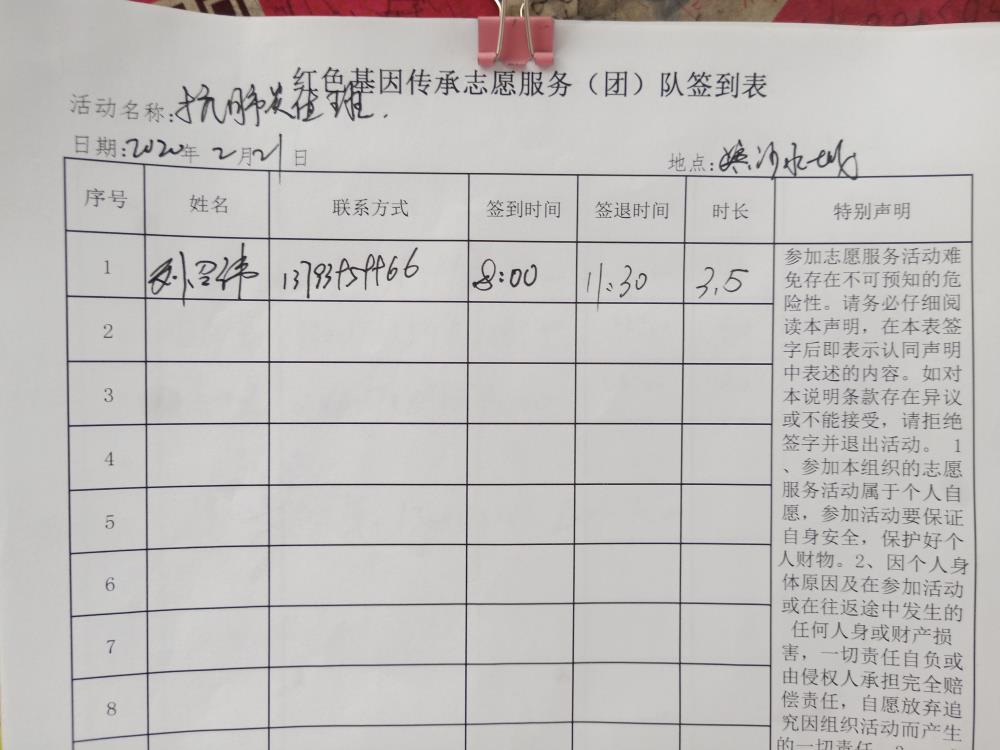 红色基因传承志愿服务（团）队签到表
活动名称:抗肺炎值班.
日期:2020年2月21日
地点:
序号 姓名 联系方式 签到时间 签退时间 时长 特别声明
1 8:00 11:30 3.5
2
3
4
5
6
7
8
参加志愿服务活动难
免存在不可预知的危
险性。请务必仔细阅
读本声明，在本表签
字后即表示认同声明
中表述的内容。如对
本说明条款存在异议
或不能接受，请拒绝
签字并退出活动。 1
、参加本组织的志愿
服务活动属于个人自
愿，参加活动要保证
自身安全，保护好个
人财物。2、因个人身
体原因及在参加活动
或在往返途中发生的
任何人身或财产损
害，一切责任自负或
由侵权人承担完全赔
偿责任，自愿放弃追
究因组织活动而产生
的一切责任